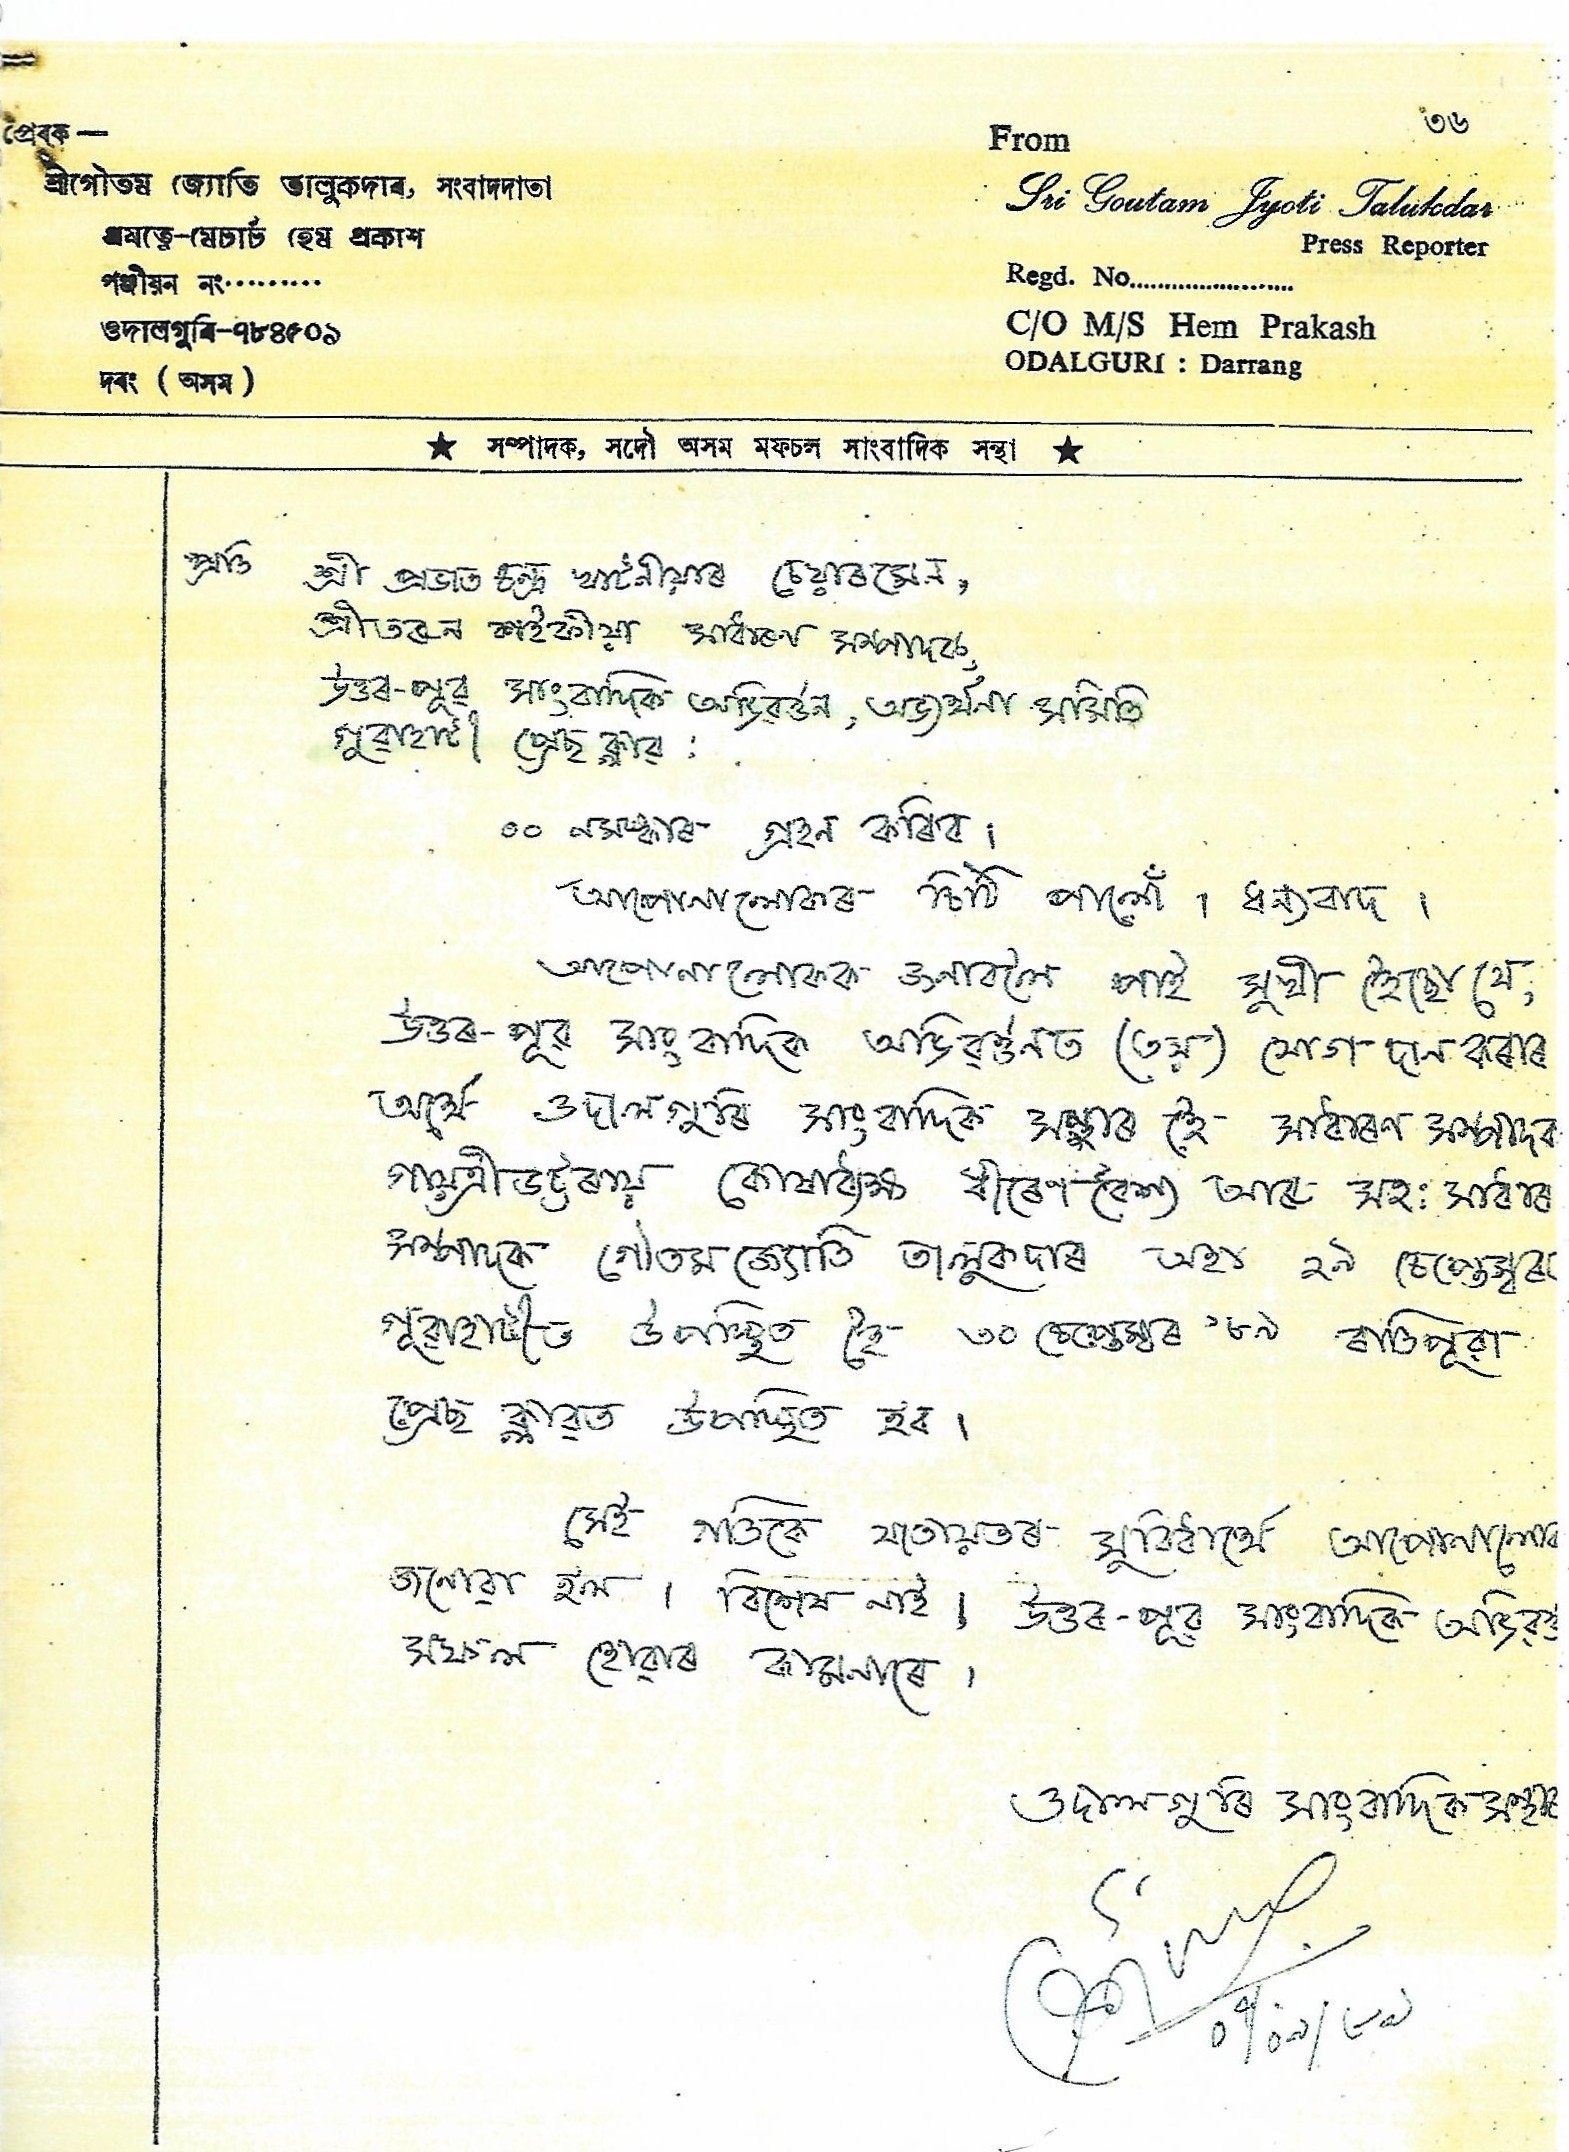 ৩৬
প্ৰেৰক —
শ্ৰীগৌতম জ্যোতি তালুকদাৰ, সংবাদদাতা
প্ৰযত্নে-মেচাৰ্চ হেম প্ৰকাশ
পঞ্জীয়ন নং.........
ওদালগুৰি-৭৮৪৫০৯
দৰং ( অসম )
From
Sri Goutam Jyoti Talukdar
Press Reporter
Regd. No.......................
C/O M/S Hem Prakash
ODALGURI : Darrang
★ সম্পাদক, সদৌ অসম মফচল সাংবাদিক সন্থা ★
প্ৰতি শ্ৰী প্ৰভাত চন্দ্ৰ খাটনীয়াৰ চেয়াৰমেন,
শ্ৰী শইকীয়া সাধাৰণ সম্পাদক,
উত্তৰ-পূব সাংবাদিক অভিবৰ্ত্তন, অভ্যৰ্থনা সমিতি
গুৱাহাটী প্ৰেছ ক্লাব :
নমস্কাৰ গ্ৰহন কৰিব ।
আপোনালোকৰ চিঠি পালোঁ । ধন্যবাদ ।
আপোনালোকক জনাবলৈ পাই সুখী হৈছো যে,
উত্তৰ-পূব সাংবাদিক অভিবৰ্ত্তনত (৩য়) যোগ দান কৰাৰ
অৰ্থে ওদালগুৰি সাংবাদিক সন্থাৰ হৈ সাধাৰণ সম্পাদক
গায়ত্ৰী কোষাধ্যক্ষ ধীৰেণ বৈশ্য আৰু সহঃ সাধাৰ
সম্পাদক গৌতমজ্যোতি তালুকদাৰ অহা ২৯ চেপ্তেম্বৰ
গুৱাহাটীত উপস্থিত হৈ ৩০ চেপ্তেম্বৰ '৮৯ ৰাতিপুৱা
প্ৰেছ ক্লাবত উপস্থিত হব ।
সেই গতিকে যতায়তৰ সুবিধাৰ্থে আপোনালোক
জনোৱা হল । বিশেষ নাই । উত্তৰ-পূব সাংবাদিক অভিবৰ্ত্ত
সফল হোৱাৰ কামনাৰে ।
ওদালগুৰি সাংবাদিক সন্থাৰ